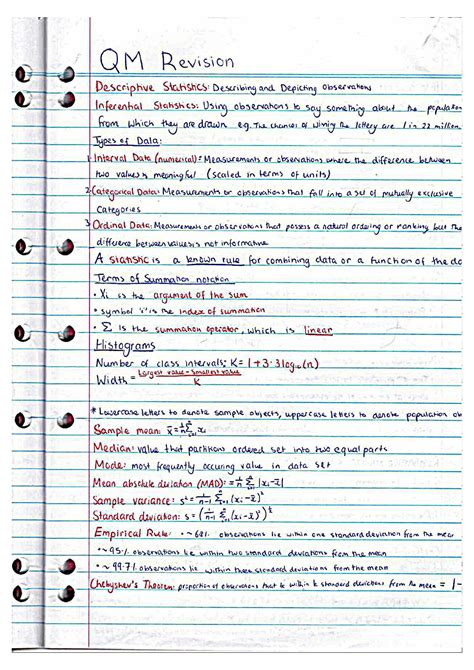 QM Revision
Descriptive Statistics: Describing and Depicting observations
Inferential Statistics: Using observations to say something about the population
from which they are drawn. e.g. The chances of winning the lottery are 1 in 22 million
Types of Data:
1. Interval Data (numerical): Measurements or observations where the difference between
two values is meaningful (scaled in terms of units)
2. Categorical Data: Measurements or observations that fall into a set of mutually exclusive
Categories
3. Ordinal Data: Measurements or observations that possess a natural ordering or ranking but the
difference between values is not informative
A statistic is a known rule for combining data or a function of the da
Terms of Summation notation
• Xi is the argument of the sum
• symbol 'i' is the index of summation
• Σ is the summation operator, which is linear
Histograms
Number of class intervals: K = 1 + 3.3 log₁₀(n)
Width = (Largest value - smallest value) / K
* Lowercase letters to denote sample objects, uppercase letters to denote population ob
Sample mean: x̄ = 1/n Σ xi
Median: value that partitions ordered set into two equal parts
Mode: most frequently occuring value in data set
Mean absolute deviation (MAD): = 1/n Σ |xi - x̄|
Sample variance: s² = 1/(n-1) Σ (xi - x̄)²
Standard deviation: s = (1/(n-1) Σ (xi - x̄)²)^½
Empirical Rule: • ~68% observations lie within one standard deviation from the mean
• ~95% observations lie within two standard deviations from the mean
• ~99.7% observations lie within three standard deviations from the mean
Chebyshev's Theorem: proportion of observations that lie within k standard deviations from the mean = 1-